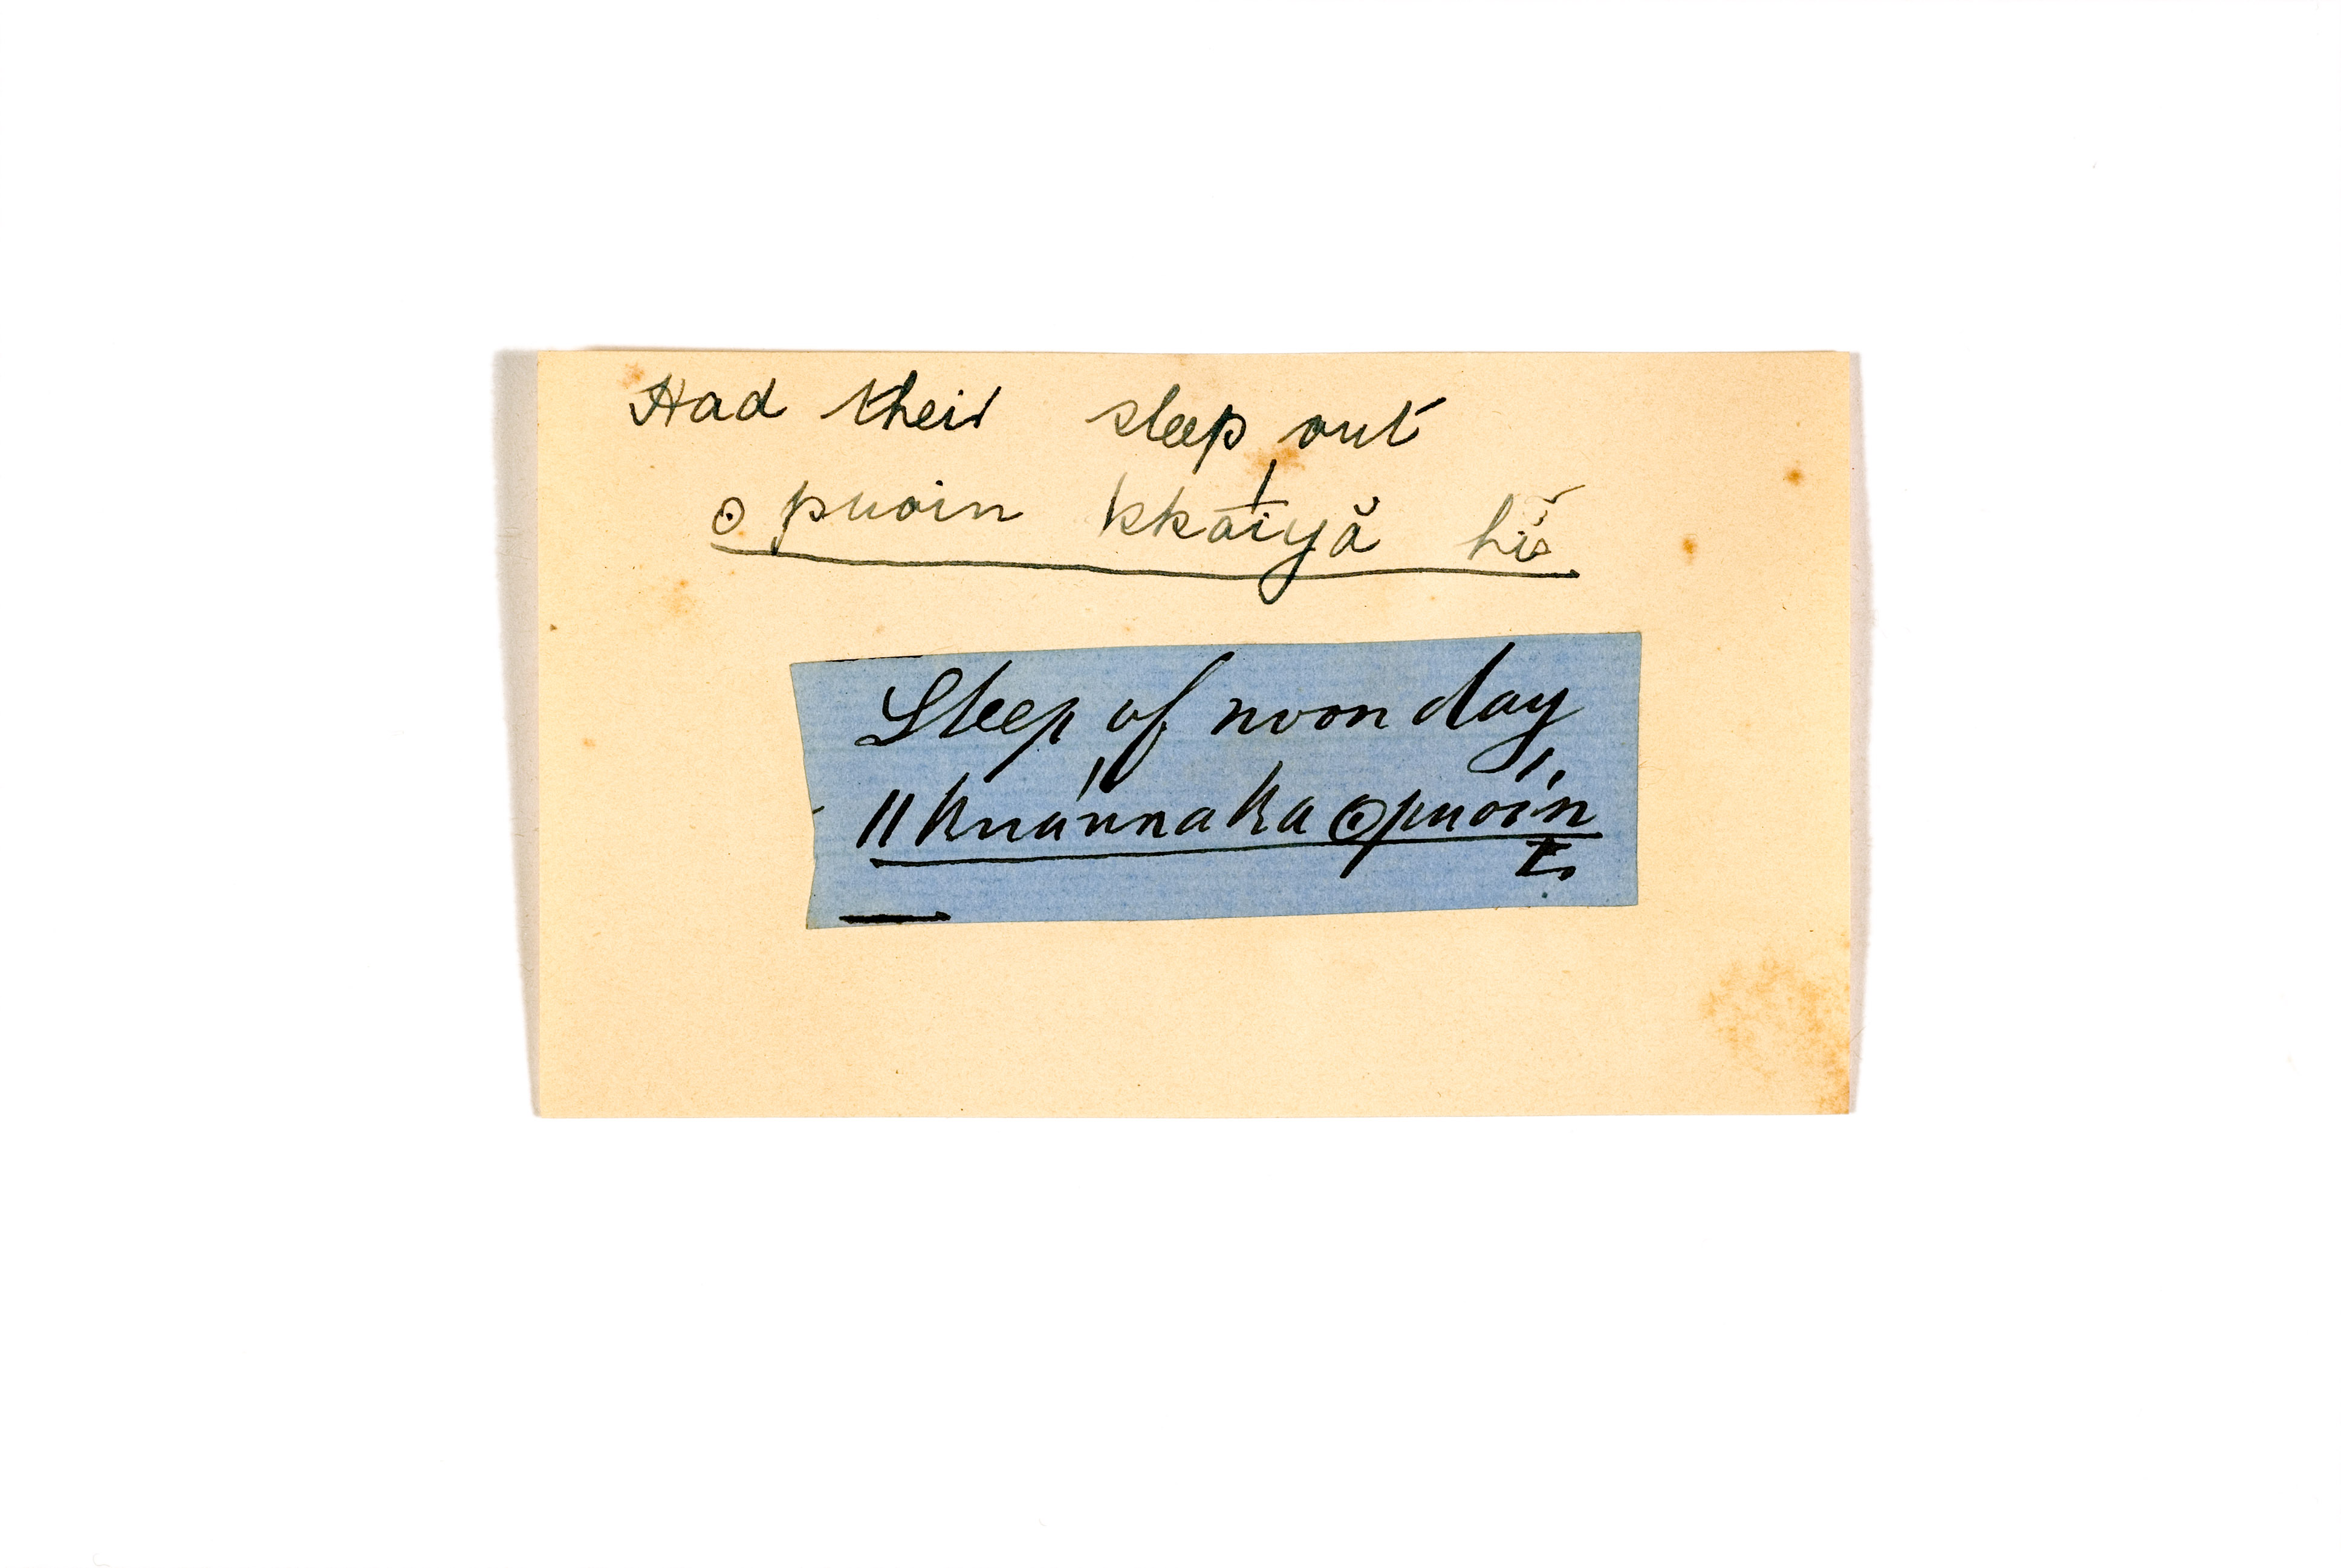 Had their sleep out
ʘ puoin kkā́iyă hĭ
Sleep of noon day
ǁkuánna ka ʘpuoín